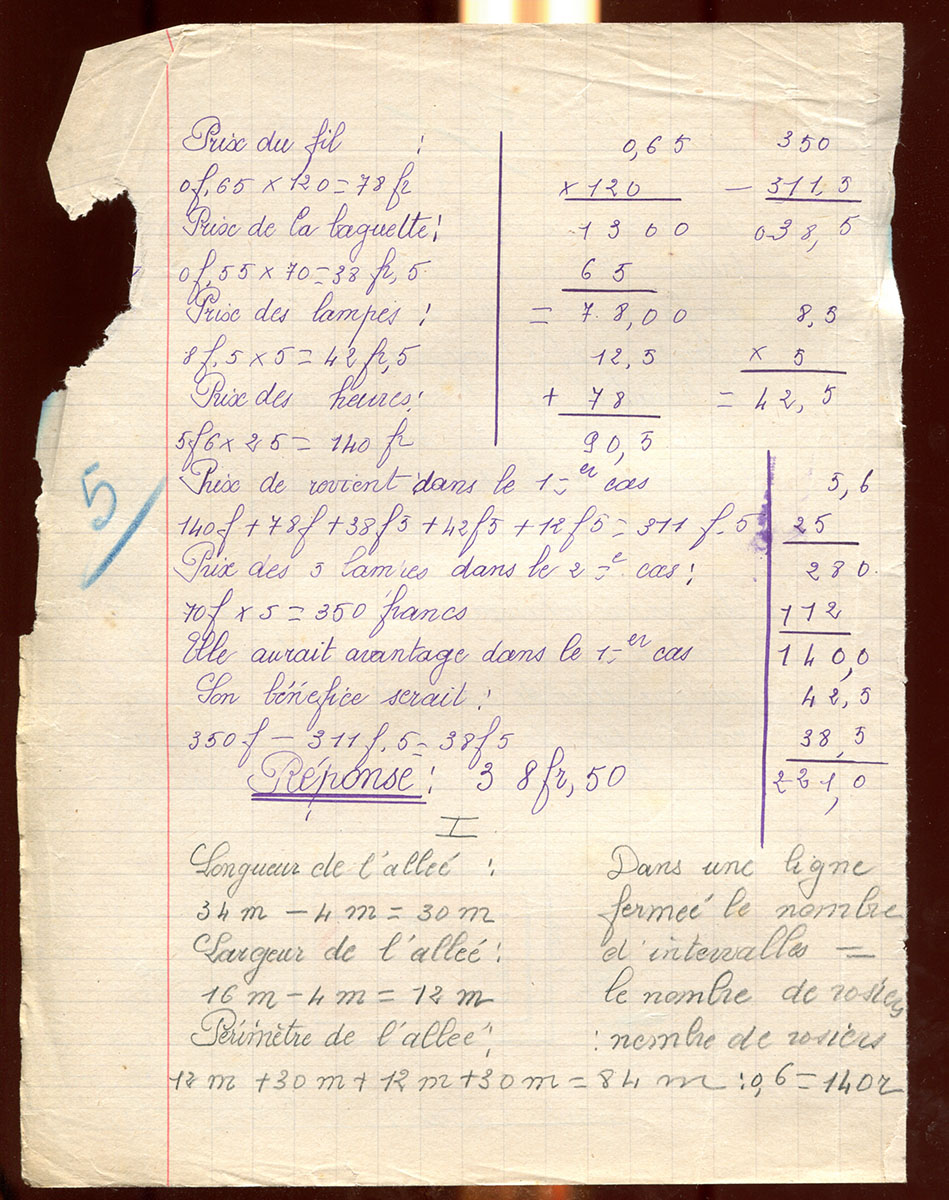 Prix du fil :
0f,65 × 120 = 78 fr
Prix de la baguette :
0f,55 × 70 = 38 fr, 5
Prix des lampes :
8f,5 × 5 = 42 fr, 5
Prix des heures :
5f6 × 25 = 140 fr
0,65
× 120
1 3 0 0
6 5
= 7 8, 0 0
12, 5
+ 7 8
9 0, 5
350
– 311, 5
0 3 8, 5
8, 5
× 5
= 4 2, 5
Prix de rovient dans le 1-er cas
140f + 78f + 38f5 + 42f5 + 12f5 = 311 f. 5
Prix des 5 lampes dans le 2-e cas :
70f × 5 = 350 francs
Elle aurait avantage dans le 1-er cas
Son bénéfice serait :
350f – 311f, 5 = 38f5
Réponse : 3 8fr, 50
5, 6
25
2 8 0
112
1 4 0, 0
4 2, 5
3 8, 5
2 2 1, 0
5
I
Longueur de l'alleé :
34 m – 4 m = 30 m
Largeur de l'alleé :
16 m – 4 m = 12 m
Périmètre de l'alleé :
12 m + 30 m + 12 m + 30 m = 84 m : 0,6 = 140 r
Dans une ligne
fermeé le nombre
d'intervalles =
le nombre de rosiers
: nombre de rosiers